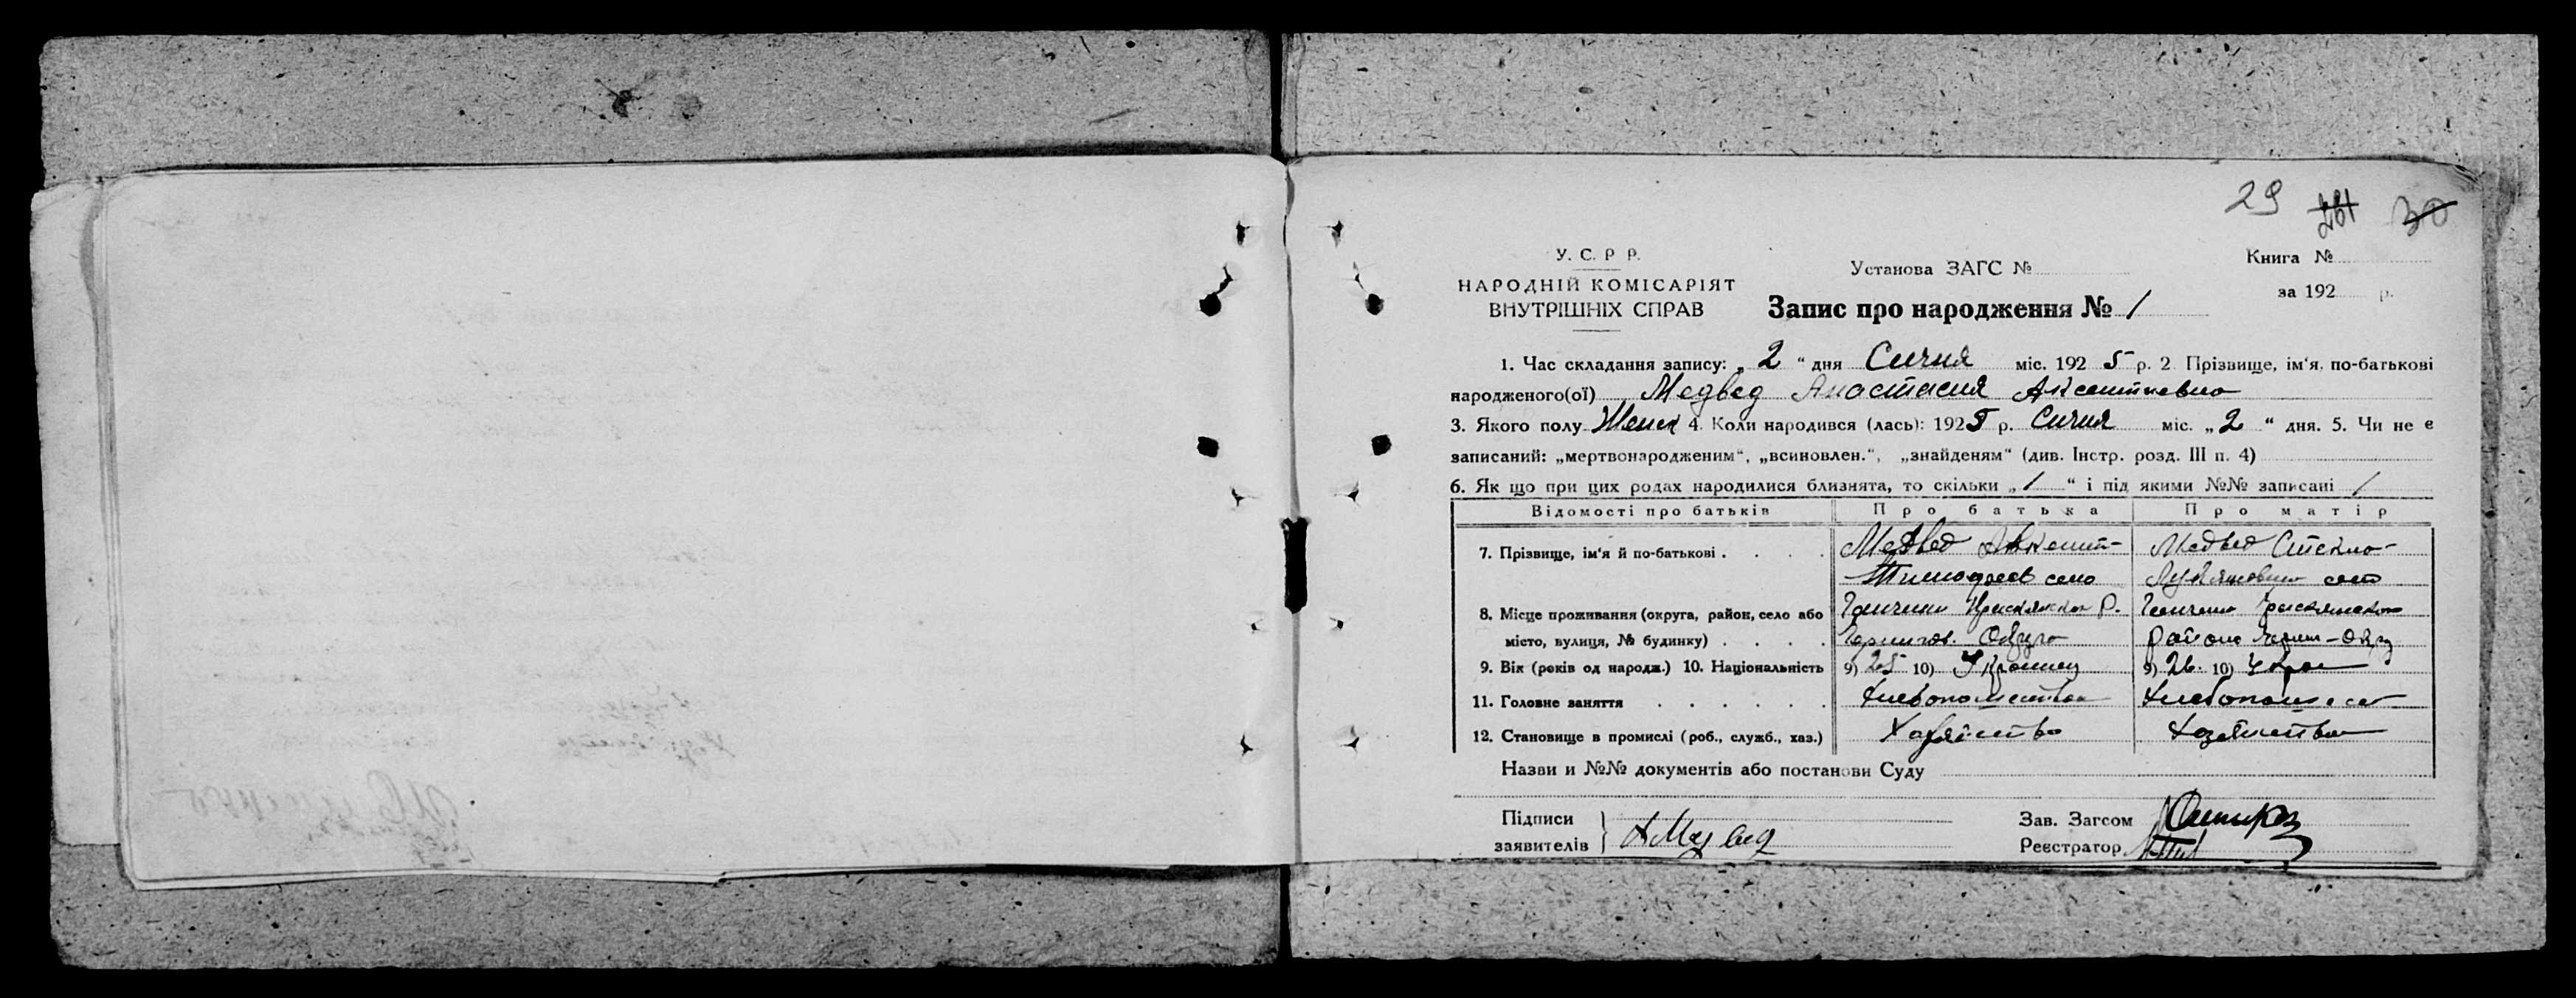 29 261 30
У. С. Р. Р.
НАРОДНІЙ КОМІСАРІЯТ
ВНУТРІШНІХ СПРАВ
Установа ЗАГС №
Книга №
за 192 р.
Запис про народження № 1
1. Час складання запису: „ 2 “ дня Сичня міс. 192 5 р. 2 Прізвище, ім‘я, по-батькові
народженого(ої) Медвед Анастасия Аксентиевна
3. Якого полу Женск 4. Коли народився (лась): 1925 р. Сичня міс. „ 2 “ дня. 5. Чи не є
записаний: „мертвонародженим“, „всиновлен.“, „знайденям“ (див. Інстр. розд. III п. 4)
6. Як що при цих родах народилися близнята, то скільки „ 1 “ і під якими №№ записані /
Відомості про батьків Про батька Про матір
7. Прізвище, ім‘я й по-батькові . . . . Медвед Медвед
село
8. Місце проживання (округа, район, село або
місто, вулиця, № будинку) . . . . Округа Района
9. Вік (років од народж.) 10. Національність 9) 25 10) Украинец 9) 26. 10) Укра
11. Головне заняття . . . . . .
12. Становище в промислі (роб., служб., хаз.) Хозяйство Хозяйство
Назви и №№ документів або постанови Суду
Підписи
заявителів } А Медвед
Зав. Загсом
Реєстратор